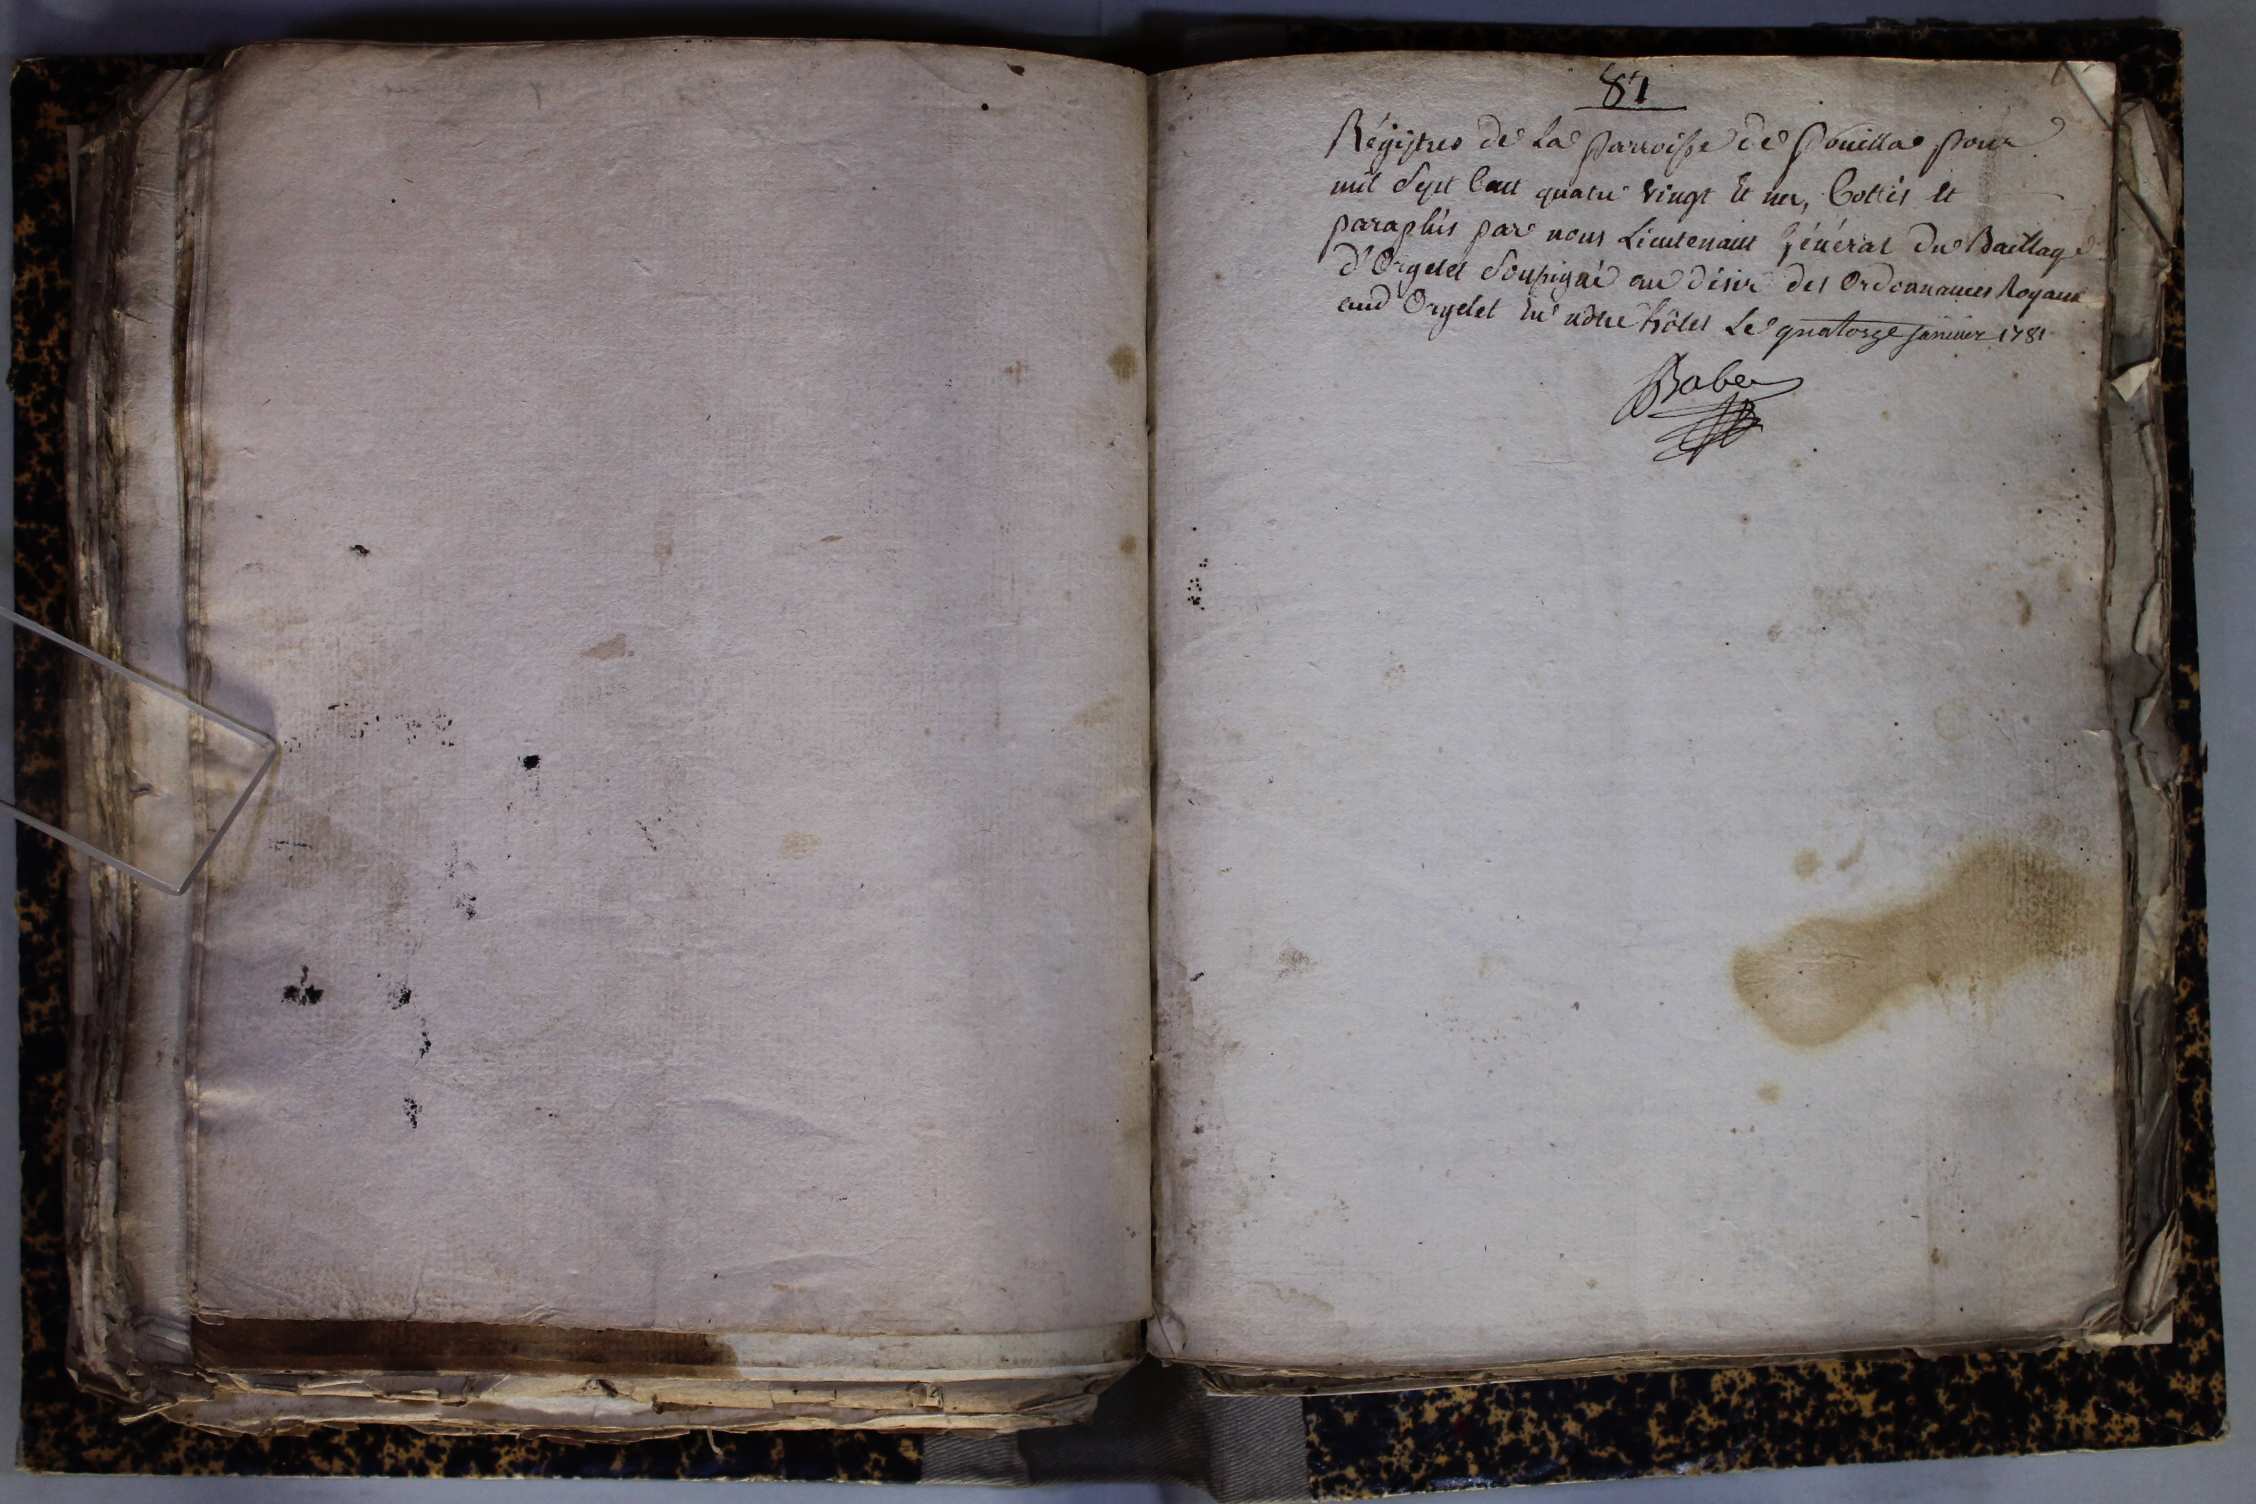 81
Régistres de La parroisse de pouilla pour
mil Sept Cent quatre vingt et un, Cottés et
paraphés par nous Lieutenant Général du Baillage
d'Orgelet Soussigné au désir des Ordonnances Royaux
aud Orgelet En notre hôtel Le quatorze janvier 1781
Babey